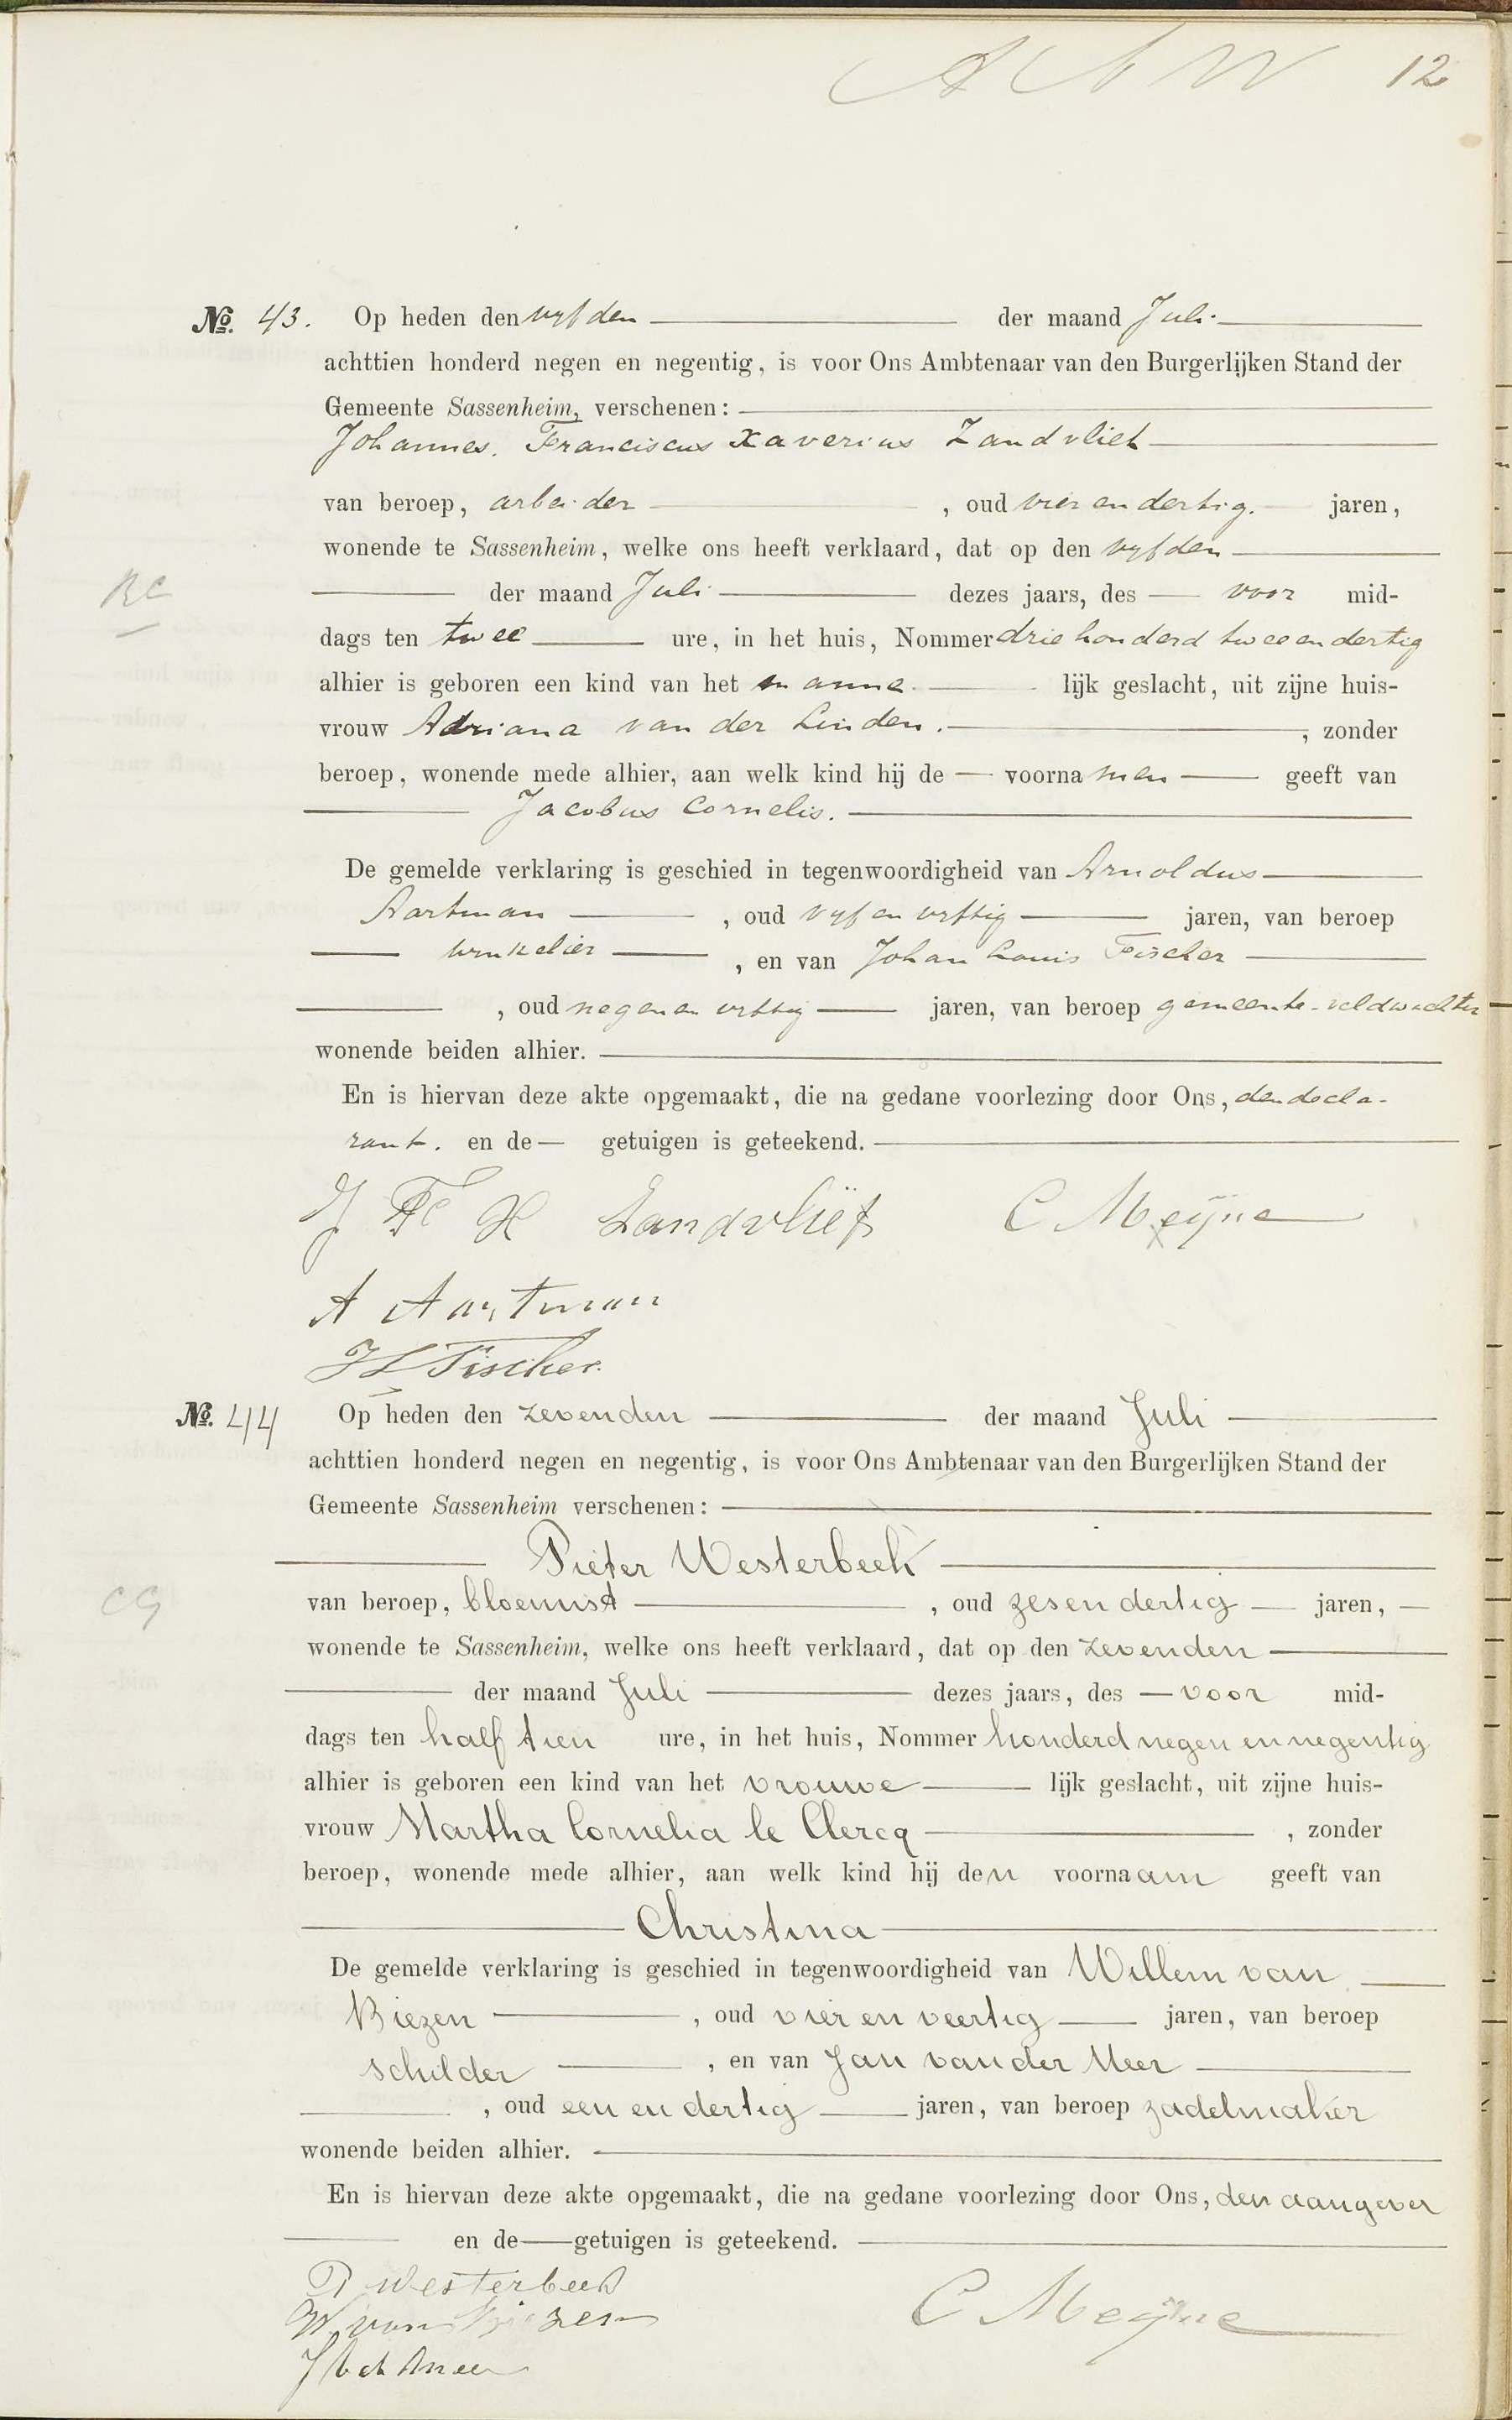 12
No. 43. Op heden den vyfden der maand Juli
achttien honderd negen en negentig, is voor Ons Ambtenaar van den Burgerlijken Stand der
Gemeente Sassenheim, verschenen:
Johannes Franciscus Xaverius Zandvliet
van beroep, arbeider , oud vier en dertig. jaren,
wonende te Sassenheim, welke ons heeft verklaard, dat op den vyfden
RC
der maand Juli dezes jaars, des voor mid-
dags ten twee ure, in het huis, Nommer driehonderd twee en dertig
alhier is geboren een kind van het manne lijk geslacht, uit zijne huis-
vrouw Adriana van der Linden. , zonder
beroep, wonende mede alhier, aan welk kind hij de voornamen geeft van
Jacobus Cornelis.
De gemelde verklaring is geschied in tegenwoordigheid van Arnoldus
Aartman , oud vyf en vyftig jaren, van beroep
winkelier , en van Johan Louis Fischer
, oud negen en vyftig jaren, van beroep gemeente-veldwachter
wonende beiden alhier.
En is hiervan deze akte opgemaakt, die na gedane voorlezing door Ons, den decla-
rant. en de getuigen is geteekend.
J F X Zandvliet C Meÿne
A Aartman
J L Fischer
No. 44 Op heden den zevenden der maand Juli
achttien honderd negen en negentig, is voor Ons Ambtenaar van den Burgerlijken Stand der
Gemeente Sassenheim verschenen:
Pieter Westerbeek
CG
van beroep, bloemist , oud zesendertig jaren,
wonende te Sassenheim, welke ons heeft verklaard, dat op den zevenden
der maand Juli dezes jaars, des voor mid-
dags ten half tien ure, in het huis, Nommer honderd negen en negentig
alhier is geboren een kind van het vrouwe lijk geslacht, uit zijne huis-
vrouw Martha Cornelia le Clercq , zonder
beroep, wonende mede alhier, aan welk kind hij den voornaam geeft van
Christina
De gemelde verklaring is geschied in tegenwoordigheid van Willem van
Biezen , oud vier en veertig jaren, van beroep
schilder , en van Jan van der Meer
, oud een en dertig jaren, van beroep zadelmaker
wonende beiden alhier.
En is hiervan deze akte opgemaakt, die na gedane voorlezing door Ons, den aangever
en de getuigen is geteekend.
P Westerbeek
W van Biezen C Meÿne
J vd Meer